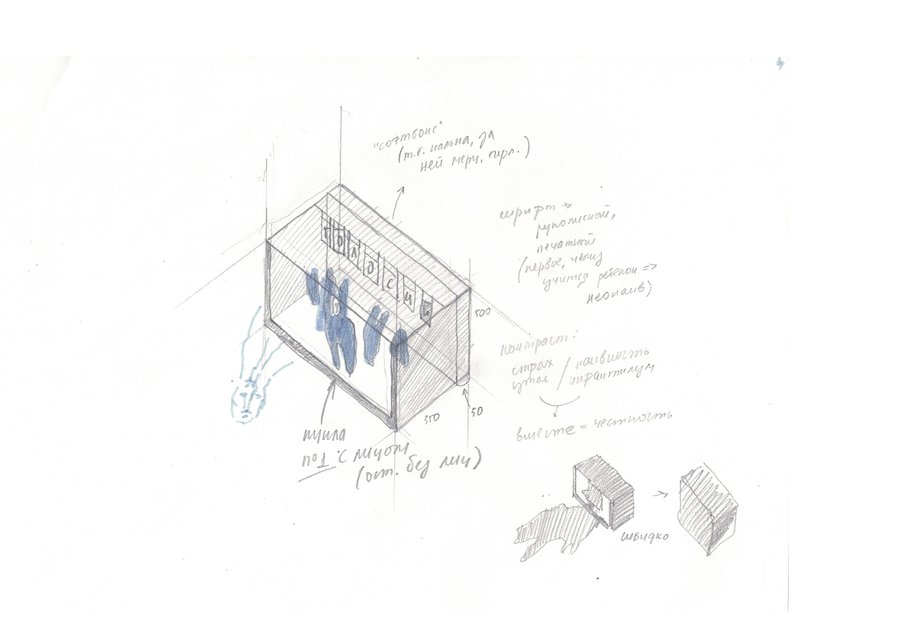 "софтбокс"
(т.е. калька, за
ней мерц. гирл.)
шрифт =>
рукописной,
печатной
(первое, чему
учится ребенок =>
неонаив)
ГОЛОСИЙ
500
контраст:
страх / наивность
утас / инфантилизм
вместе = честность
350
50
по 1 с лицом
(ост. без лиц)
швидко